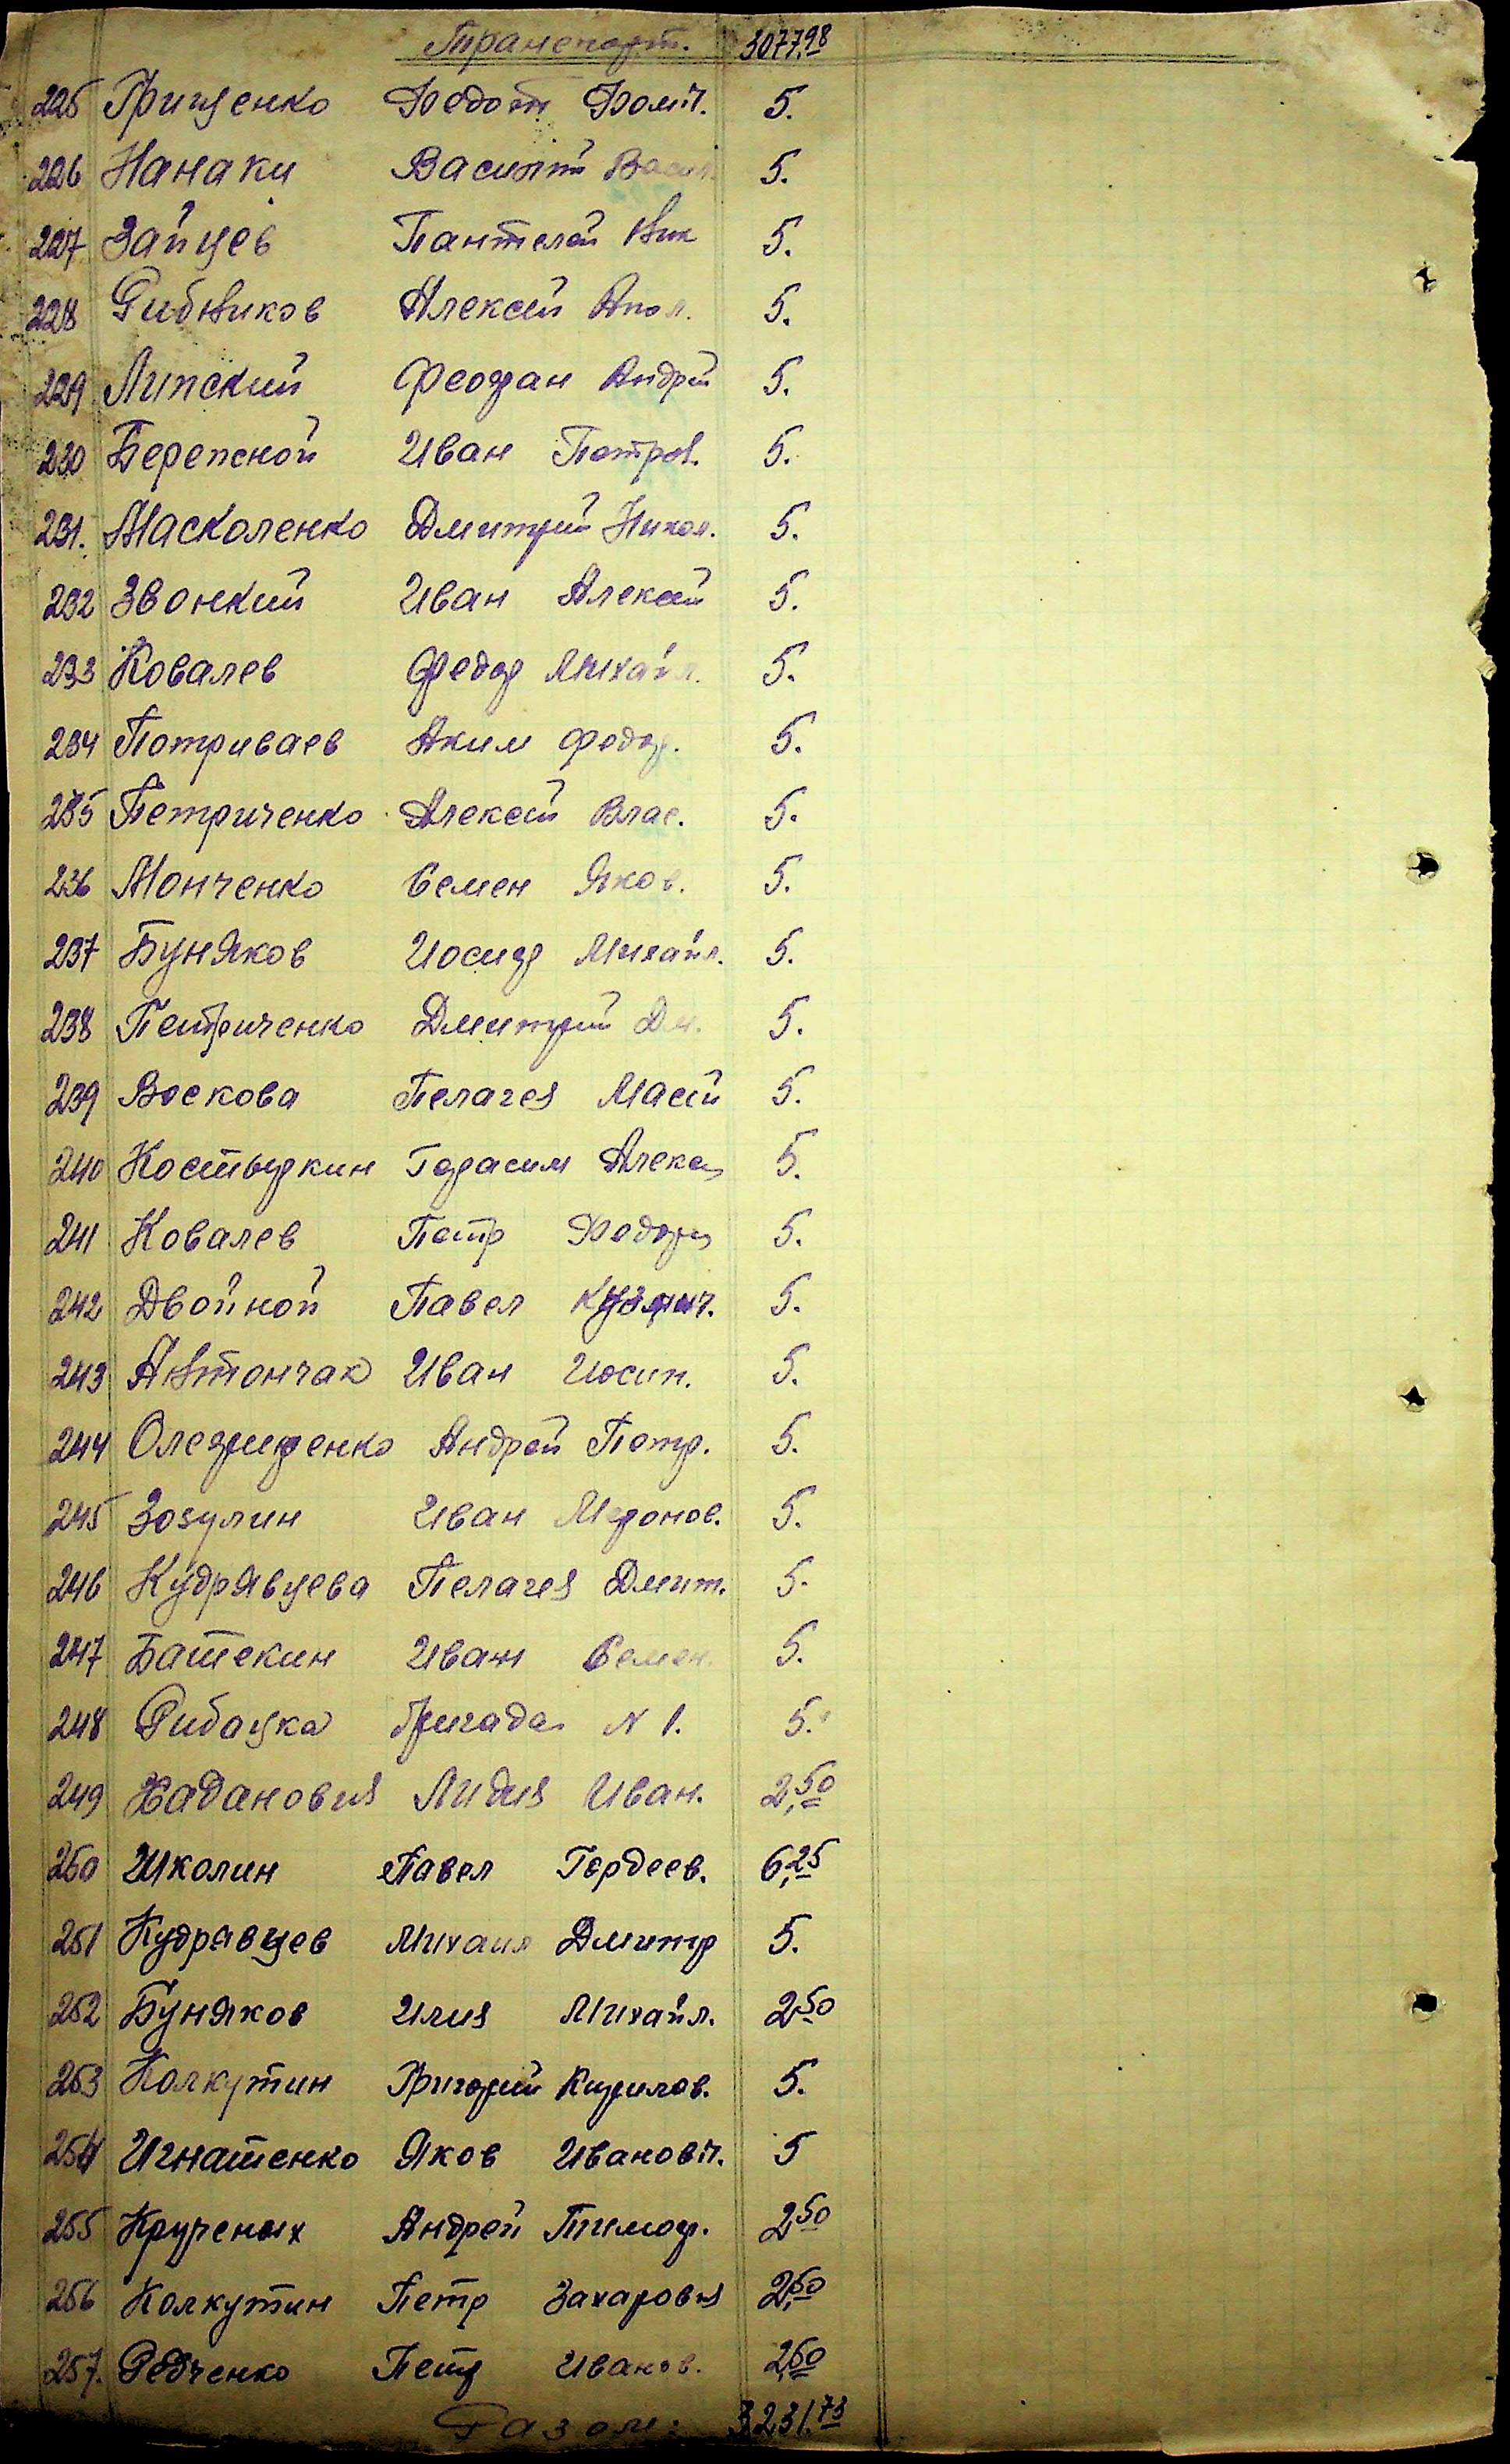 Транспорт. 3077,98
225 Грищенко Федот Фомич. 5.
226 Нанаки Василий Васил 5.
227 Зайцев Пантелей Ник 5.
228 Рибников Алексей Апол. 5.
229 Липский Феофан Андрей 5.
230 Берепской Иван Петров. 5.
231. Масколенко Дмитрий Никол. 5.
232 Звонкий Иван Алексей 5.
233 Ковалев Федор Михайл. 5.
234 Потриваев Аким Федор. 5.
235 Петриченко Алексей Влас. 5.
236 Монченко Семен Яков. 5.
237 Буняков Иосиф Михайл. 5.
238 Петриченко Дмитрий Дм. 5.
239 Воскова Пелагея Масей 5.
240 Костыркин Герасим Алекс 5.
241 Ковалев Петр Федор 5.
242 Двойной Павел Кузмич. 5.
243 Автончак Иван Иосип. 5.
244 Олефиренко Андрей Петр. 5.
245 Зозулин Иван Миронов. 5.
246 Кудрявцева Пелагея Дмит. 5.
247 Батекин Иван Семен. 5.
248 Рибацка бригада N 1. 5.
249 Хадановия Лидия Иван. 2,50
250 Школин Павел Гордеев. 6,25
251 Кудравцев Михаил Дмитр 5.
252 Буняков Илия Михайл. 2,50
253 Колкутин Григорий Кирилов. 5.
254 Игнатенко Яков Иванович. 5
255 Крученых Андрей Тимоф. 2,50
256 Колкутин Петр Захаровия 2,50
257. Редченко Петр Иванов. 2,50
Разом: 3231,73